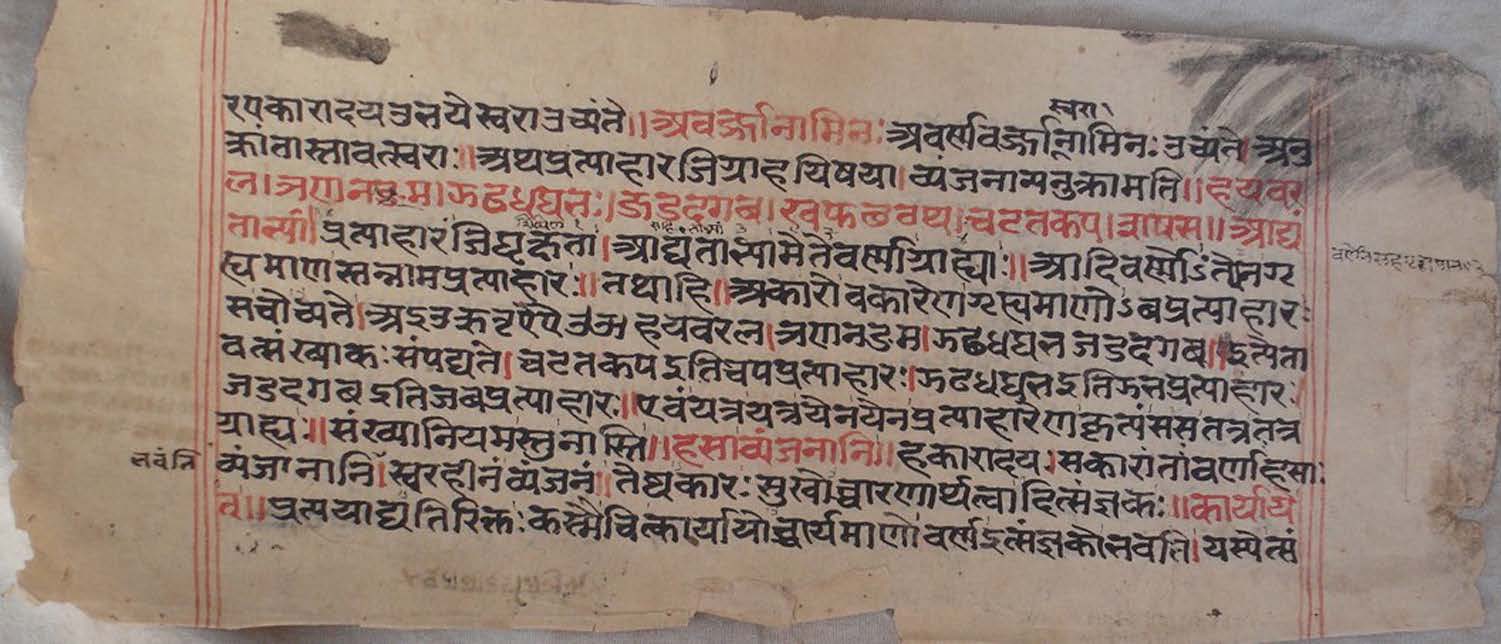 स्वरा
रएकारादयउभयेस्वराउच्यंते॥अवर्ज्जानामिनः अवर्णवर्ज्जानामिनः उच्यंते अनु
क्रांतास्तावत्स्वराः॥अथप्रत्याहारजिग्राहयिषया।व्यंजनान्यनुक्रामति॥हयवर
ल।ञणनङम।झढधघभः।जडदगब।खफछठथ।चटतकप।शषस॥आद्यं
ताभ्यां॥प्रत्याहारंजिघृक्षता।आद्यंताभ्यामेतेवर्णाग्राह्याः॥आदिवर्णोऽंत्येनगृ
ह्यमाणस्तन्नामप्रत्याहारः॥तथाहि॥अकारोबकारेणगृह्यमाणोऽबप्रत्याहारः
सचोच्यते।अइउऋऌएऐओऔहयवरल।ञणनङम।झढधघभजडदगब॥इत्येता
वत्संख्याकःसंपद्यते।चटतकपइतिचपप्रत्याहारः।झढधघभइतिझभप्रत्याहारः
जडदगबइतिजबप्रत्याहारः॥एवंयत्रयत्रयेनयेनप्रत्याहारेणकृत्यंससतत्रतत्र
ग्राह्यः॥संख्यानियमस्तुनास्ति॥हसाव्यंजनानि॥हकारादयःसकारांतावर्णाहसाः
भवंति
व्यंजनानि।स्वरहीनंव्यंजनं॥तेष्वकारःसुखोच्चारणार्थत्वादित्संज्ञकः॥कार्याये
त्॥प्रत्ययाद्यतिरिक्तःकस्मैचित्कार्यायोच्चार्यमाणोवर्णइत्संज्ञकोभवति।यस्येत्सं